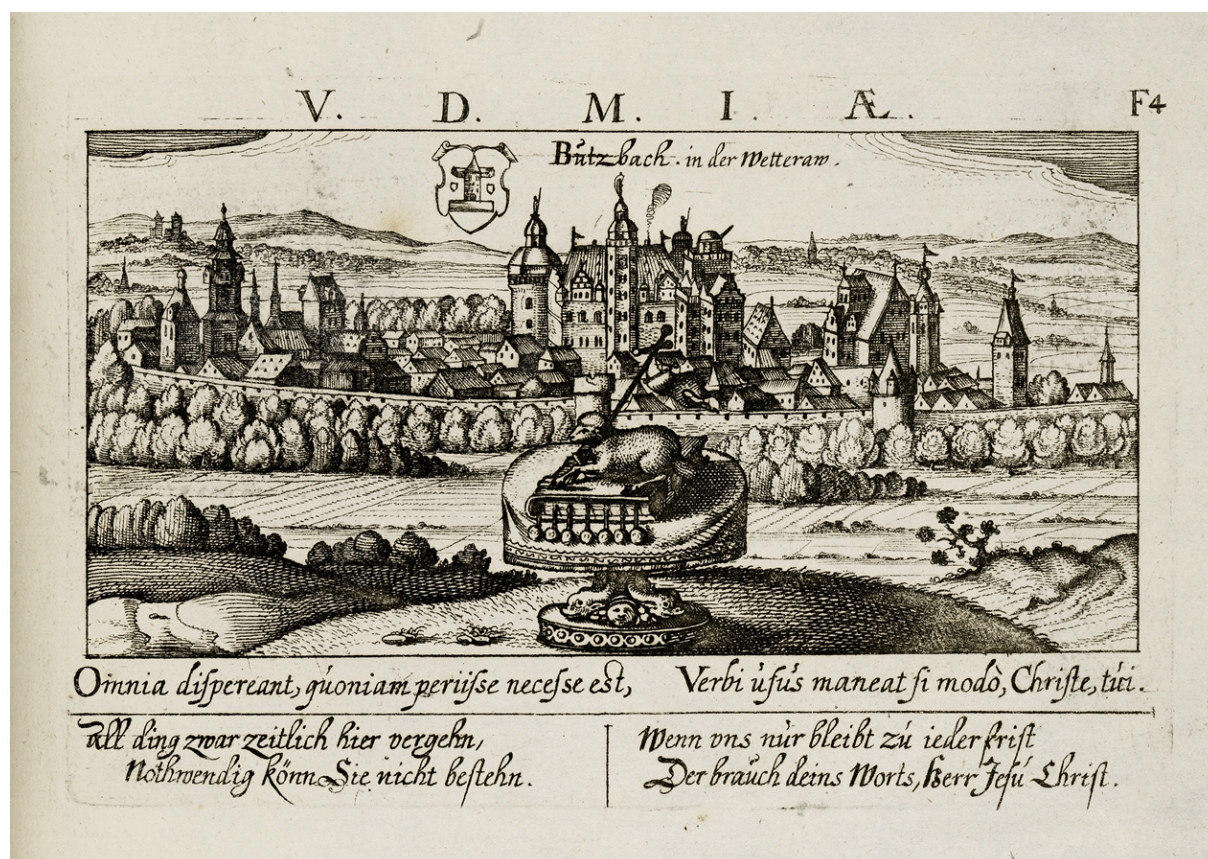 V. D. M. I. Æ. F4
Butzbach. in der Wetteraw.
Omnia dispereant, quoniam periisse necesse est, Verbi usus maneat si modò, Christe, tui.
All ding zwar zeitlich hier vergehn,
Nothwendig könn Sie nicht bestehn.
Wenn vns nur bleibt zu ieder frist
Der brauch deins Worts, Herr Jesu Christ.